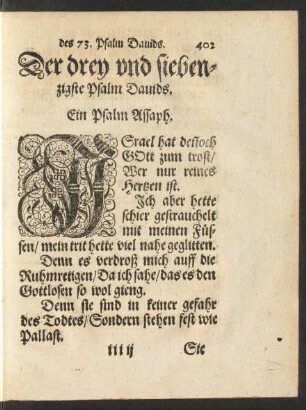 des 73. Psalm Dauids. 402
Der drey vnd sieben-
zigste Psalm Dauids.
Ein Psalm Assaph.
ISrael hat dennoch
GOtt zum trost/
Wer nur reines
Hertzen ist.
Ich aber hette
schier gestrauchelt
mit meinen Füs-
sen/ mein trit hette viel nahe geglitten.
Denn es verdroß mich auff die
Ruhmretigen/ Da ich sahe/ das es den
Gottlosen so wol gieng.
Denn sie sind in keiner gefahr
des Todtes/ Sondern stehen fest wie
Pallast.
llll ij Sie